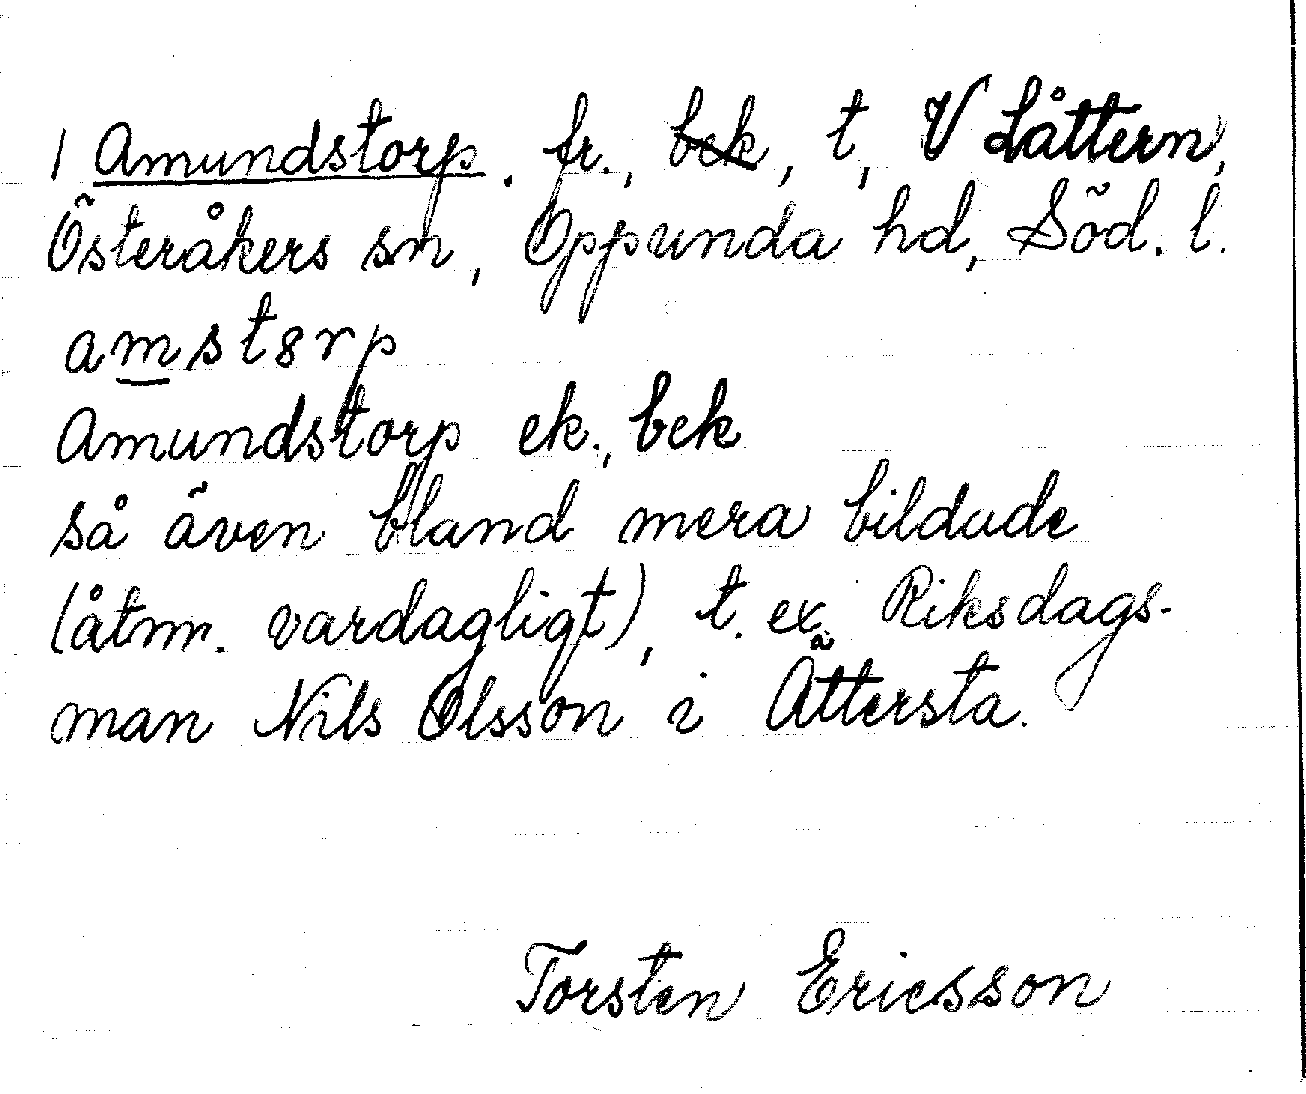 1 Amundstorp. fr., bek, t, V Låttern,
Österåkers sn, Oppunda hd, Söd. l.
amst8rp
Amundstorp ek., bek
så även bland mera bildude
(åtm. vardagligt), t. ex. Riksdags-
man Nils Olsson i Ättersta.
Torsten Ericsson